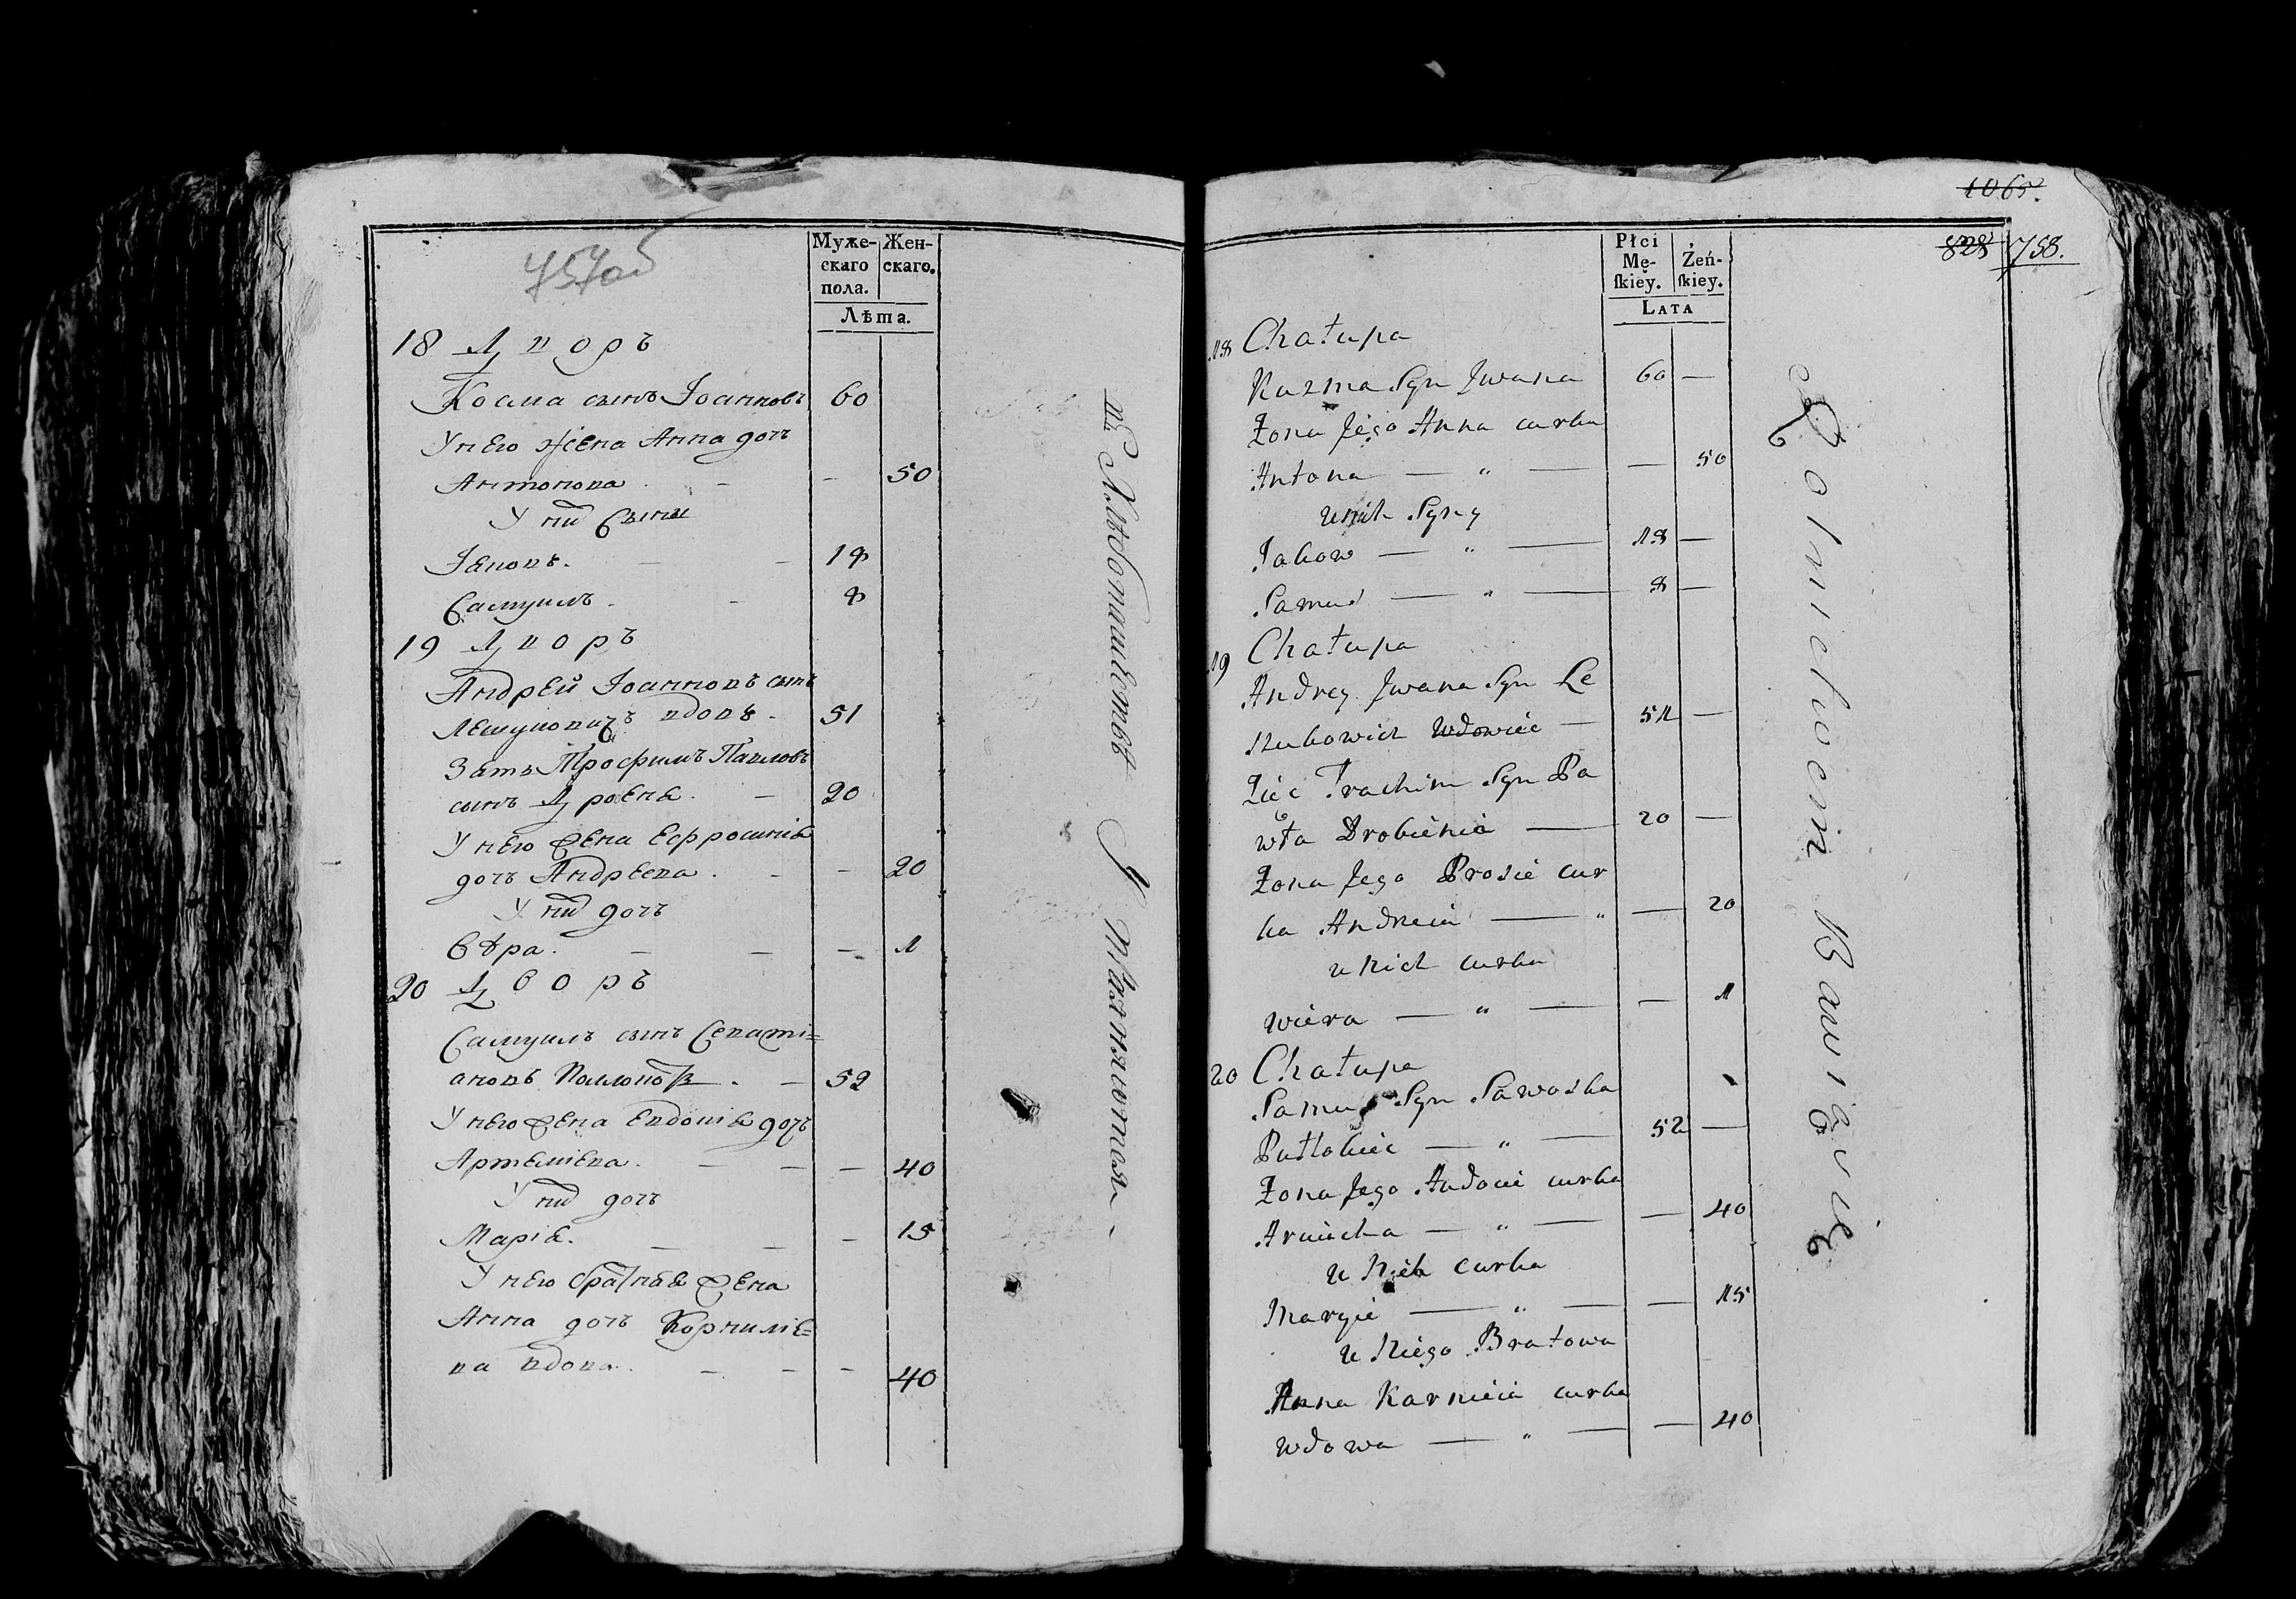 757об
Муже-
скаго
пола.
Жен-
скаго.
Лѣта.
18 Дворъ
Косма сынъ Іоанновъ 60
У него жена Анна дочь
Антонова. - - 50
У них сыны
Іаковъ. - - 18
Самуилъ. - 8
19 Дворъ
Андрей Іоанновъ сынъ
вдовъ. 51
Зять Трофимъ Павловъ
сынъ - 20
У него жена Ефросиніа
дочь Андреева. - - 20
У них дочь
Вѣра. - - - 1
20 Дворъ
Самуилъ сынъ Севасті=
ановъ - 52
У него жена Евдокіа дочь
Артеміева. - - - 40
У них дочь
Маріа. - - - 15
У него братнѣа жена
Анна дочь Корниліе=
ва вдова. - - - 40
1065.
828 758.
Płci
Mę-
ſkiey.
Żeń-
ſkiey.
Lata
18 Chałupa
Kuzma Syn Jwana 60 —
Żona Jego Anna curka
Antona — „ — — 50
u nich Syny
Jakow — „ — 18 —
Samuś — „ — 8 —
19 Chałupa
Andrey Jwana Syn Le
szukowicz Wdowiec — 51 —
Zięć Trachim Syn Pa
wła — 20 —
Żona Jego Prosie cur
ka Andreia — „ — 20
u nich curka
Wiera — „ — — 1
20 Chałupa
Samuś Syn Sawostka
— „ — 52 —
Żona Jego Audocie curka
— „ — — 40
u nich curka
Maryie — „ — — 15
u niego Bratowa
Anna Karnieia curka
wdowa — „ — — 40